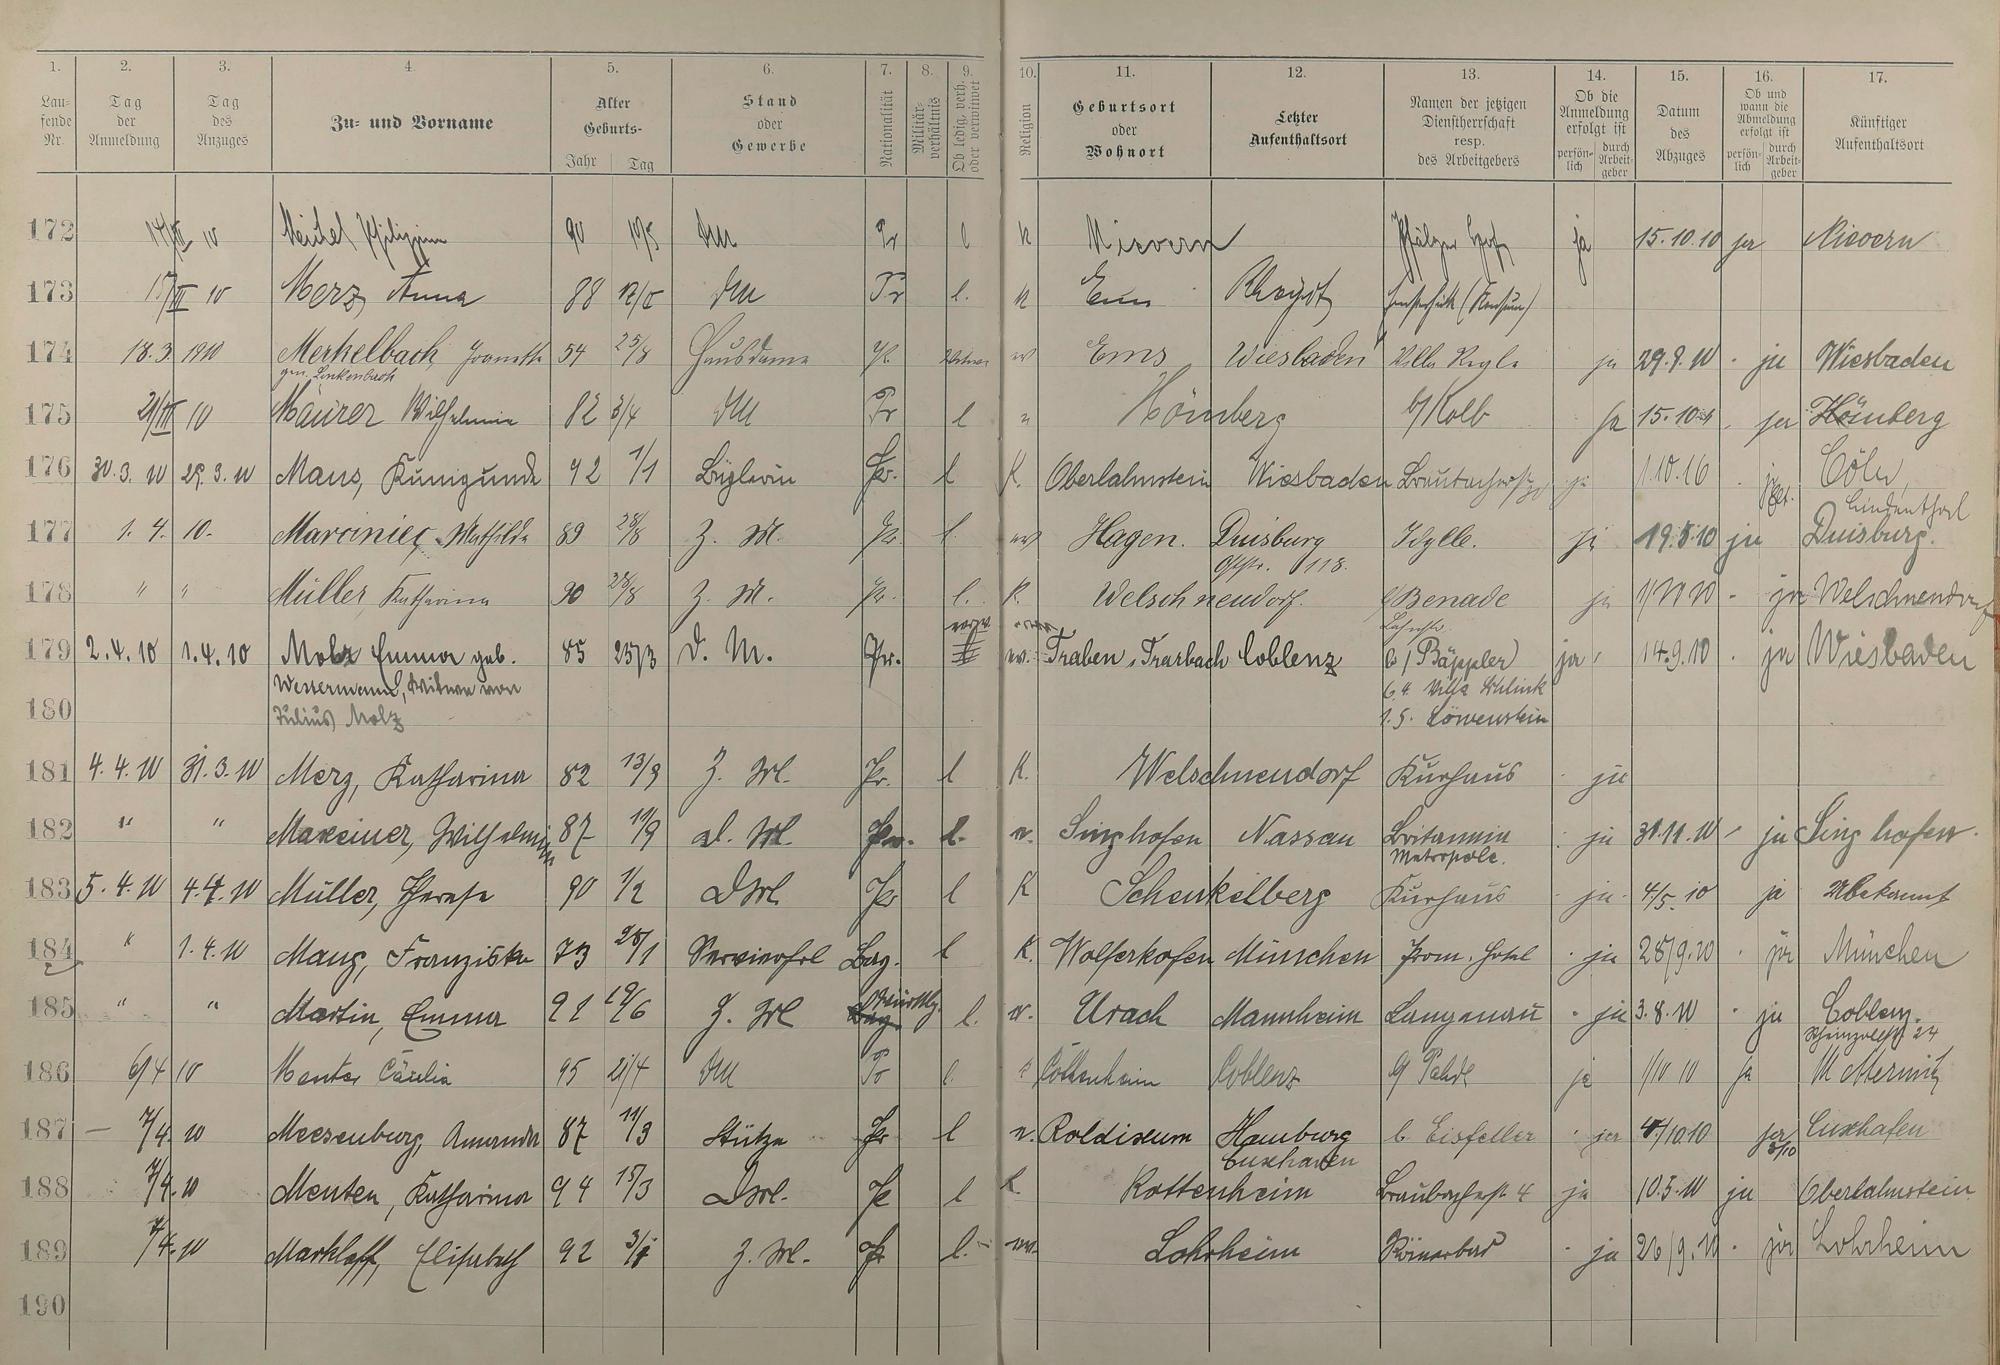 1. 2. 3. 4. 5. 6. 7. 8. 9. 10. 11. 12. 13. 14. 15. 16. 17.
Laufende Nr.
Tag der Anmeldung
Tag des Anzuges
Zu- und Vorname
Alter Geburts- Jahr Tag
Stand oder Gewerbe
Nationalität
Militärverhältnis
Ob ledig, verh. oder verwitwet
Religion
Geburtsort oder Wohnort
Letzter Aufenthaltsort
Namen der jetzigen Dienstherrschaft resp. des Arbeitgebers
Ob die Anmeldung erfolgt ist persönlich durch Arbeitgeber
Datum des Abzuges
Ob und wann die Abmeldung erfolgt ist persönlich durch Arbeitgeber
Künftiger Aufenthaltsort
172 10 Michel 90 Pr l k Nievern ja 15.10.10 ja Nievern
173 10 Merz, Anna 88 Pr l. k Ems Rheydt
174 18.3. 1910 Merkelbach, 54 25/8 Hausdame Pr. Ems Wiesbaden Villa ja 29.9.10 ja Wiesbaden
gen. Linkenbach
175 21/III 10 Maurer Wilhelmine 82 3/4 Pr l Hömberg b/Kolb ja 15.10 ja Hömberg
176 30.3.10 29.3.10 Maus, Kunigunde 92 1/1 Büglerin Pr. l K. Oberlahnstein Wiesbaden ja 1.10.16 Cöln,
Lindenthal
177 1. 4. 10. Marciniec, Mathilde 89 28/8 Z. M. Pr. l. Hagen. Duisburg Idylle. ja 19.5.10 ja Duisburg.
118.
178 " " Müller Katharina 90 28/8 Z. M. Pr. l. K. Welschneudorf. b/Benade ja ja Welschneudorf
179 2.4.10 1.4.10 Molz Emma geb. 85 23/3 D. M. Pr. ev. Traben-Trarbach Coblenz b/Bäppler ja 14.9.10 ja Wiesbaden
Westermann, Witwe von
6.4. Villa Schlink
180 Julius Molz 1.5. Löwenstein
181 4.4.10 31.3.10 Merz, Katharina 82 13/9 Z. M. Pr. l K. Welschneudorf Kurhaus ja
182 " " Maxeiner, Wilhelmine 87 19/9 M. Pr. l. Singhofen Nassau Britannia ja 31.11.10 ja Singhofen.
Metropole.
183 5.4.10 4.4.10 Müller, Therese 90 1/2 DM. Pr l K Schenkelberg Kurhaus ja 4/5.10 ja Unbekannt
184 " 1.4.10 Maug, Franziska 73 28/1 Servierfrl Bay. l K. Wolferkofen München Prom. Hotel ja 28/9.10 ja München
185 " " Martin, Emma 91 19/6 Z. M. Württbg. l. Urach Mannheim Langenau ja 3.8.10 ja Coblenz.
24
186 6/4 10 Menter Cäcilia 95 21/4 Pr l. Cottenheim Coblenz ja 1/10 10 ja
187 — 7/4. 10 Meesenburg, Amanda 87 11/3 Stütze Pr l Roldisum Hamburg b. Eisfeller ja 4/10.10 ja Cuxhafen
Cuxhaven
188 7/4.10 Menten, Katharina 94 15/3 DM. Pr l K. Kottenheim 4 ja 10.5.10 ja Oberlahnstein
189 7/4.10 Markloff, Elisabeth 92 Z. M. Pr l. Lohrheim Römerbad ja 26/9.10 ja Lohrheim
190